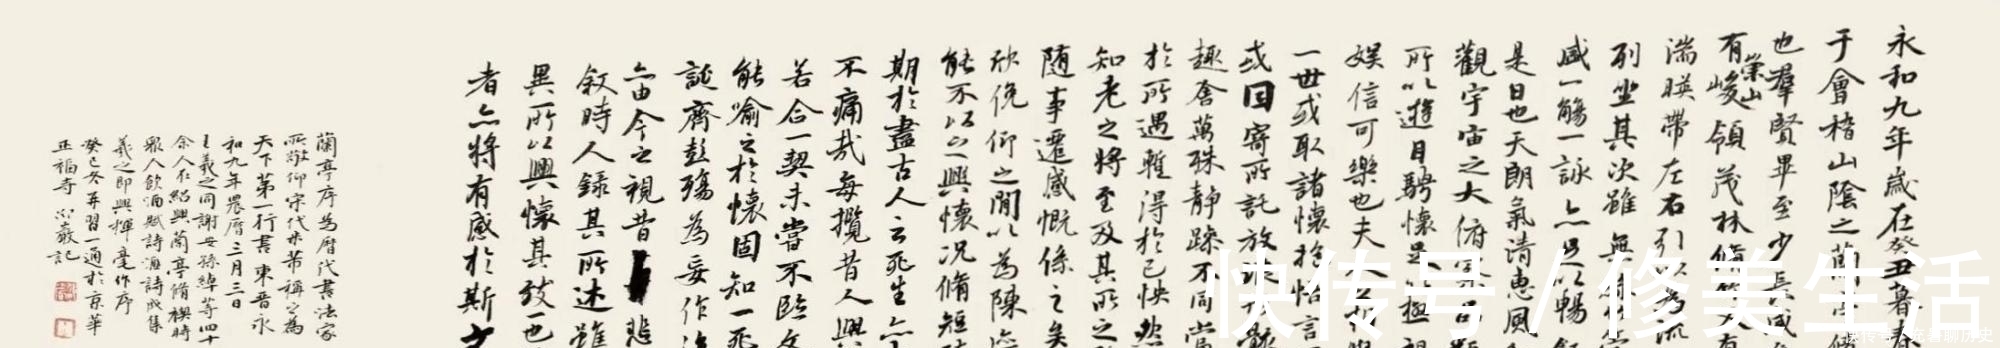 永和九年歲在癸丑暮春
于會稽山陰之蘭亭脩
也羣賢畢至少長咸
有崇山峻領茂林脩竹又有
湍暎帶左右引以為流
列坐其次雖無絲竹管
盛一觴一詠亦足以暢敘
是日也天朗氣清惠風
觀宇宙之大俯察品類
所以遊目騁懷足以極視
娛信可樂也夫人之相與
一世或取諸懷抱悟言
或因寄所託放浪形骸
趣舍萬殊靜躁不同當
於所遇暫得於己怏然
知老之將至及其所之
隨事遷感慨係之矣
欣俛仰之間以為陳迹
能不以之興懷況脩短
期於盡古人云死生亦
不痛哉每攬昔人興
若合一契未嘗不臨文
能喻之於懷固知一死
誕齊彭殤為妄作
亦由今之視昔悲
敘時人錄其所述雖
異所以興懷其致一也
者亦將有感於斯文
蘭亭序為曆代書法家
所敬仰宋代米芾稱之為
天下第一行書東晉永
和九年農曆三月三日
王羲之同謝安孫綽等四十
余人在紹興蘭亭脩禊時
眾人飲酒賦詩酒詩成集
羲之即興揮毫作序
癸巳冬再習一通於京華
正福寺 嚴記
快传号/修美生活